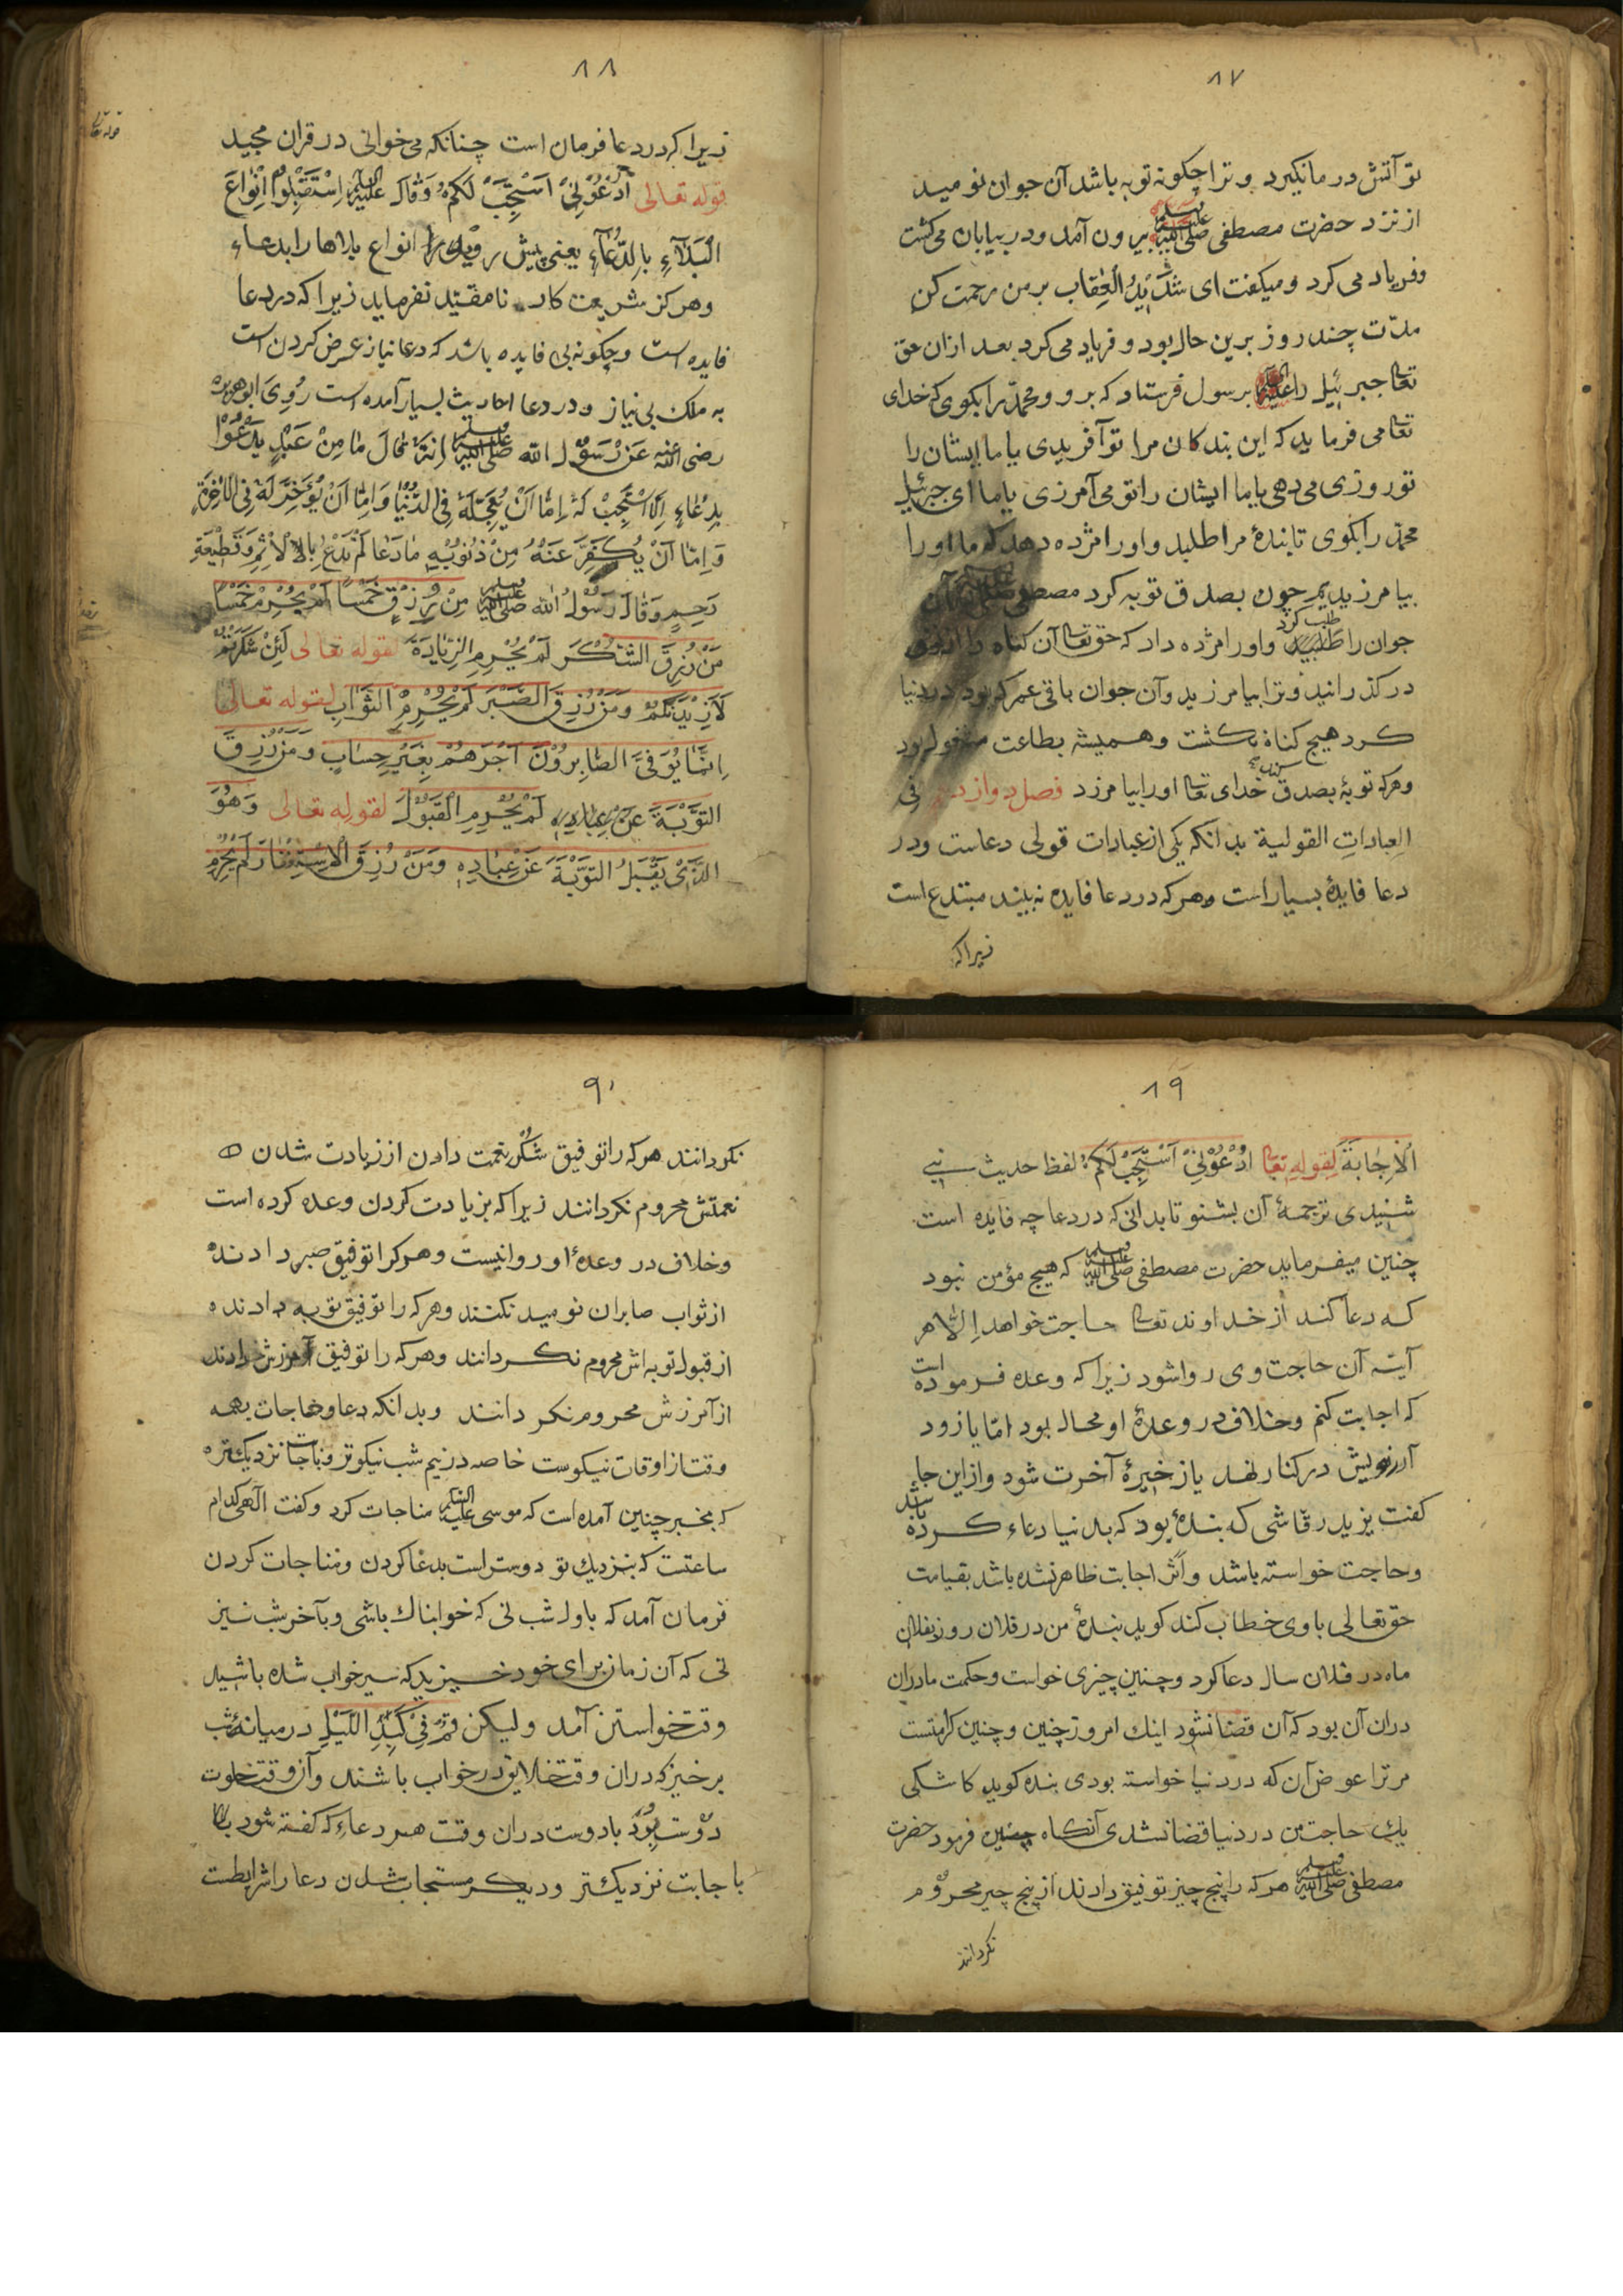 ۸۷
تو آتش در ما نگیرد و ترا چگونه توبه باشد آن جوان نومید
از نزد حضرت مصطفی صلی الله علیه وسلم بیرون آمد و در بیابان می کشت
و فریاد می کرد و میکفت ای شَدِیْدُ الْعِقَاب بر من رحمت کن
مدّت چند روز برین حال بود و فریاد می کرد بعد ازان حق
تعالی جبرئیل را علیه السلام بر رسول فرستاد که برو و محمّد را بکوی که خدای
تعالی می فرماید که این بندکان مرا تو آفریدی یا ما ایشان را
تو روزی می دهی یا ما ایشان را تو می آمرزی یا ما ای جبرئیل
محمّد را بکوی تا بندهٔ مرا طلبد و او را مژده دهد که ما او را
بیامرزیدیم چون بصدق توبه کرد مصطفی آن
جوان را طلب کرد و او را مژده داد که حق تعالی آن کناه را از تو
در کذرانید و ترا بیامرزید و آن جوان باقی عمر که بود در دنیا
کرد هیچ کناه نکشت و همیشه بطاعت مشغول بود
و هرکه توبهٔ بصدق کند خدای تعالی او را بیامرزد فصل دوازدهم فی
العباداتِ القولیة بدانکه یکی از عبادات قولی دعاست و در
دعا فایدهٔ بسیار است و هرکه در دعا فایده نه بیند مبتدع است
زیراکه
۸۸
زیرا که در دعا فرمان است چنانکه می خوانی در قران مجید
قوله تعالی اُدْعُوْنِیْ اَسْتَجِبْ لَکُمْ وَقَالَ علیه السلام اِسْتَقْبِلُوْا اَنْوَاعَ
الْبَلَآءِ بِالدُّعَآءِ یعنی پیش روید انواع بلاها را بدعاء
و هرکز شریعت کار نامفید نفرماید زیرا که در دعا
فایده است و چکونه بی فایده باشد که دعا نیاز عرض کردن است
به ملک بی نیاز و در دعا احادیث بسیار آمده است رُوِیَ ابوهریره
رضی الله عنه عَنْ رَسُوْل الله صلی الله علیه وسلم اِنَّهُ قَالَ مَا مِنْ عَبْدٍ یَدْعُوْا
بِدُعَاءٍ اِلَّا اسْتُجِبْ لَهُ اِمَّا اَنْ یُعَجِّلَهُ فِی الدُّنْیَا وَاِمَّا اَنْ یُؤَخِّرَ لَهُ فِی الْآخِرَةِ
وَاِمَّا اَنْ یُکَفِّرَ عَنْهُ مِنْ ذُنُوْبِهِ مَا دَعَا لَمْ یَدْعُ بِالْاِثْمِ وَقَطِیْعَةِ
رَحِیمٍ وَقَالَ رَسُوْلُ الله صلی الله علیه وسلم مَنْ رُزِقَ خَمْسًا لَمْ یُحْرَمْ خَمْسًا
مَنْ رُزِقَ الشُّکْرَ لَمْ یُحْرِمِ الزِّیَادَةَ لقوله تعالی لَئِنْ شَکَرْتُمْ
لَاَزِیْدَنَّکُمْ وَمَنْ رُزِقَ الصَّبْرَ لَمْ یُحْرِمِ الثَّوَابَ لقوله تعالی
اِنَّمَا یُوَفَّی الصَّابِرُوْنَ اَجْرَهُمْ بِغَیْرِ حِسَابٍ وَمَنْ رُزِقَ
التَّوْبَةَ عَنْ عِبَادِهِ لَمْ یُحْرِمِ الْقَبُوْلَ لقوله تعالی وَهُوَ
الَّذِیْ یَقْبَلُ التَّوْبَةَ عَنْ عِبَادِهِ وَمَنْ رُزِقَ الْاِسْتِغْفَارَ لَمْ یُحْرِمِ
۸۹
اَلْاِجَابَةَ لِقوله تعالی اُدْعُوْنِیْ اَسْتَجِبْ لَکُمْ لفظ حدیث
شنیدی ترجمهٔ آن بشنو تا بدانی که در دعا چه فایده است
چنین میفرماید حضرت مصطفی صلی الله علیه وسلم که هیچ مؤمن نبود
که دعا کند از خداوند تعالی حاجت خواهد اِلّا هر
آینه آن حاجت وی روا شود زیرا که وعده فرموده است
که اجابت کنم و خلاف در وعدهٔ او محال بود امّا یا زود
آرزویش در کنار نهد یا ذخیرهٔ آخرت شود و از این جا
کفت یزید رقاشی که بندهٔ بود که بدنیا دعاء کرده باشد
و حاجت خواسته باشد و اثر اجابت ظاهر نشده باشد بقیامت
حق تعالی با وی خطاب کند کوید بندهٔ من در فلان روز بفلان
ماه در فلان سال دعا کرد و چنین چیزی خواست و حکمت ما دران
دران آن بود که آن قضا نشود اینک امروز چنین و چنین کرامتست
مر ترا عوض آن که در دنیا خواسته بودی بنده کوید کاشکی
یک حاجت من در دنیا قضا نشدی آنکاه چنین فرمود حضرت
مصطفی صلی الله علیه وسلم هرکه را پنج چیز توفیق دادند از پنج چیز محروم
نکردانند
۹۰
نکردانند هرکه را توفیق شکر نعمت دادن از زیادت شدن
نعمتش محروم نکردانند زیرا که بزیادت کردن وعده کرده است
و خلاف در وعدهٔ او روا نیست و هرکرا توفیق صبر دادند
از ثواب صابران نومید نکنند و هرکه را توفیق توبه دادند
از قبول توبه اش محروم نکردانند و هرکه را توفیق آمرزش دادند
از آمرزش محروم نکردانند و بدانکه دعا و حاجات بهمه
وقت از اوقات نیکوست خاصه در نیم شب نیکوتر و باجابت نزدیکتر
که بخبر چنین آمده است که موسی علیه السلام مناجات کرد و کفت الهی کدام
ساعتست که بنزدیک تو دوستر است بدعا کردن و مناجات کردن
فرمان آمد که باول شب نی که خوابناک باشی و بآخر شب نیز
نی که آن زمان برای خود خیزید که سیر خواب شده باشید
وقت خواستن آمد ولیکن قُمْ فِیْ کَبِدِ اللَّیْلِ در میانهٔ شب
برخیز که دران وقت خلایق در خواب باشند و آن وقت خلوت
دوست بُوَد با دوست دران وقت هر دعاء که کفته شود
باجابت نزدیکتر و دیکر مستجاب شدن دعا را شرایطست